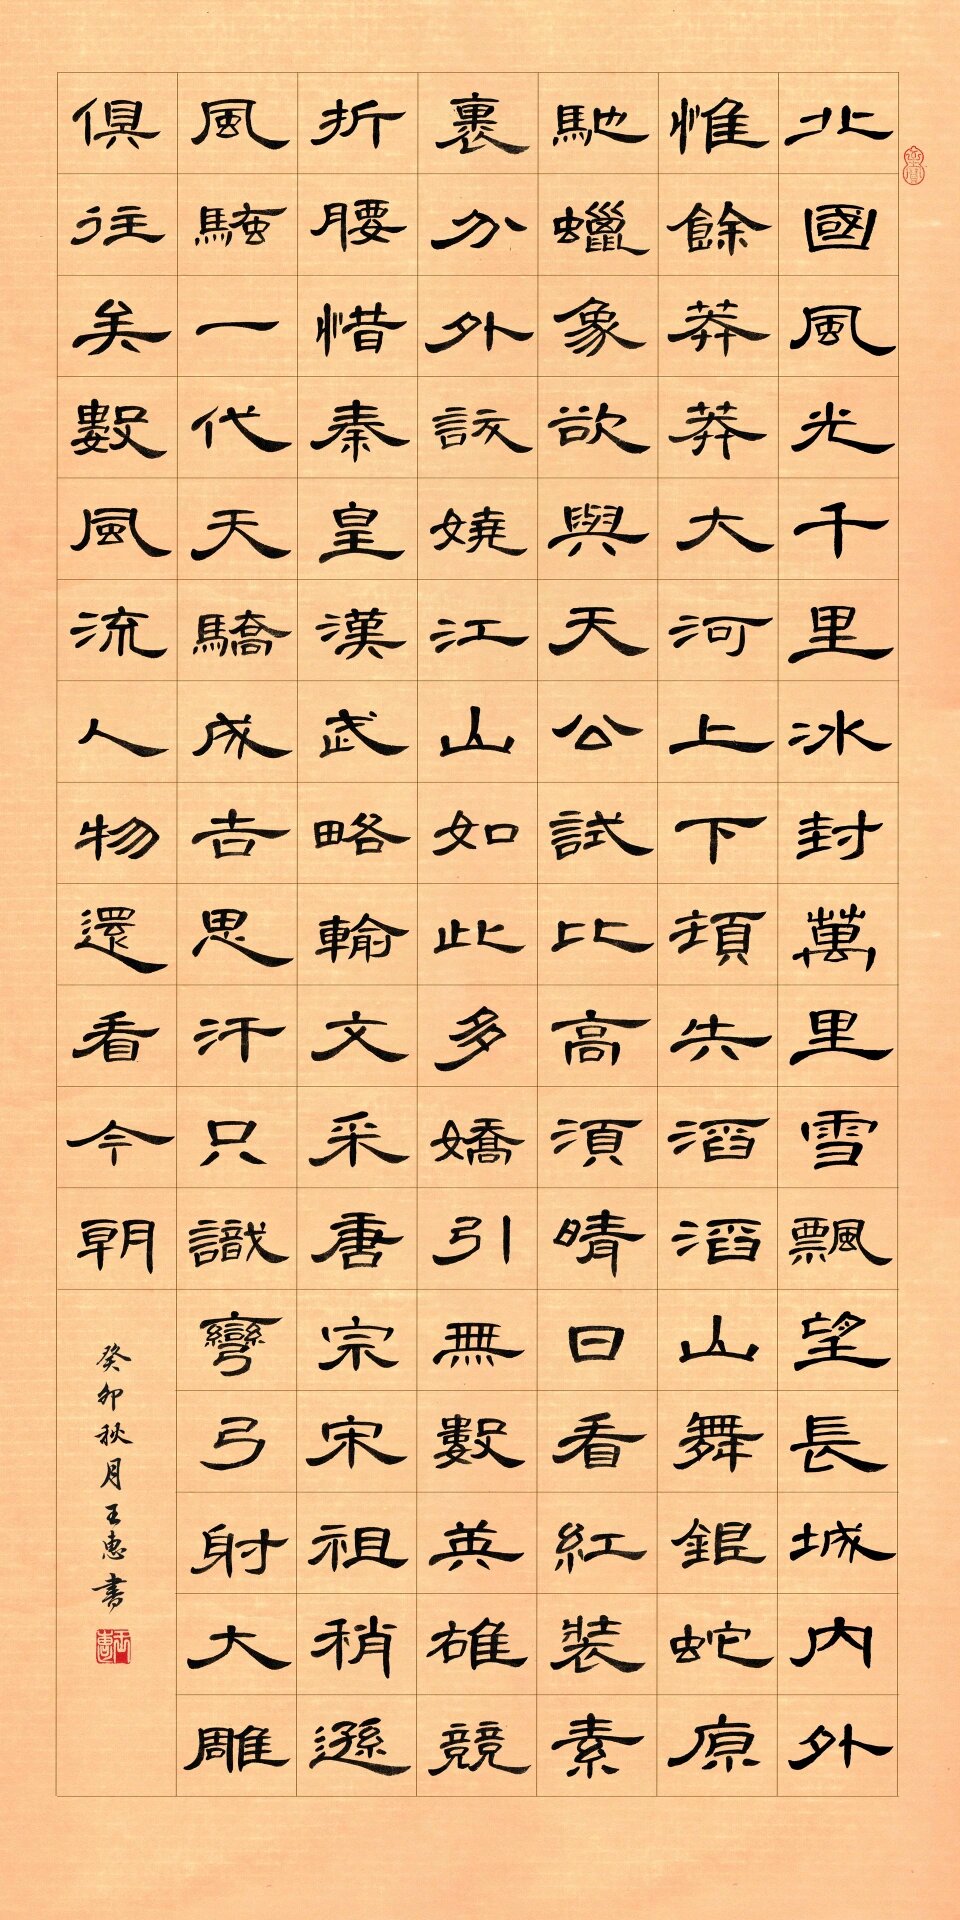 北國風光千里冰封萬里雪飄望長城內外
惟餘莽莽大河上下頓失滔滔山舞銀蛇原
馳蠟象欲與天公試比高須晴日看紅裝素
裹分外該嬈江山如此多嬌引無數英雄競
折腰惜秦皇漢武略輸文采唐宗宋祖稍遜
風騷一代天驕成吉思汗只識彎弓射大雕
俱往矣數風流人物還看今朝
癸卯秋月王惠書